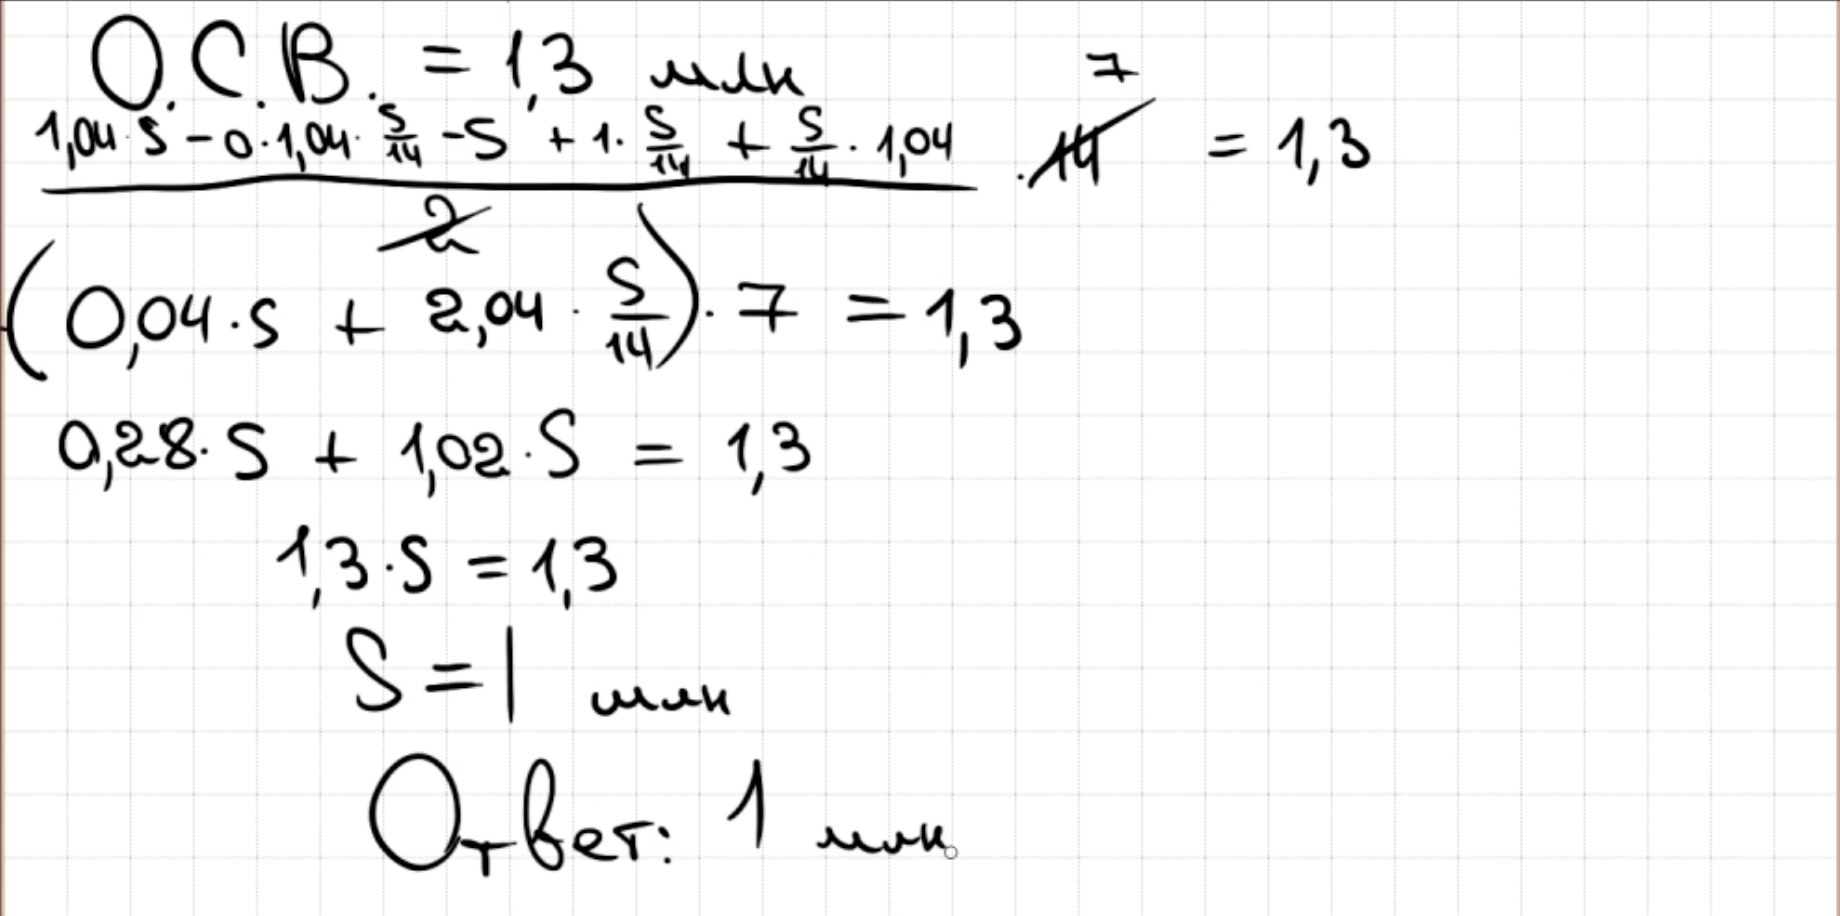 О.С.В. = 1,3 млн
(1,04·S - 0·1,04·S/14 - S + 1·S/14 + S/14·1,04)/2 · 14 = 1,3
7
(0,04·S + 2,04·S/14)·7 = 1,3
0,28·S + 1,02·S = 1,3
1,3·S = 1,3
S = 1 млн
Ответ: 1 млн